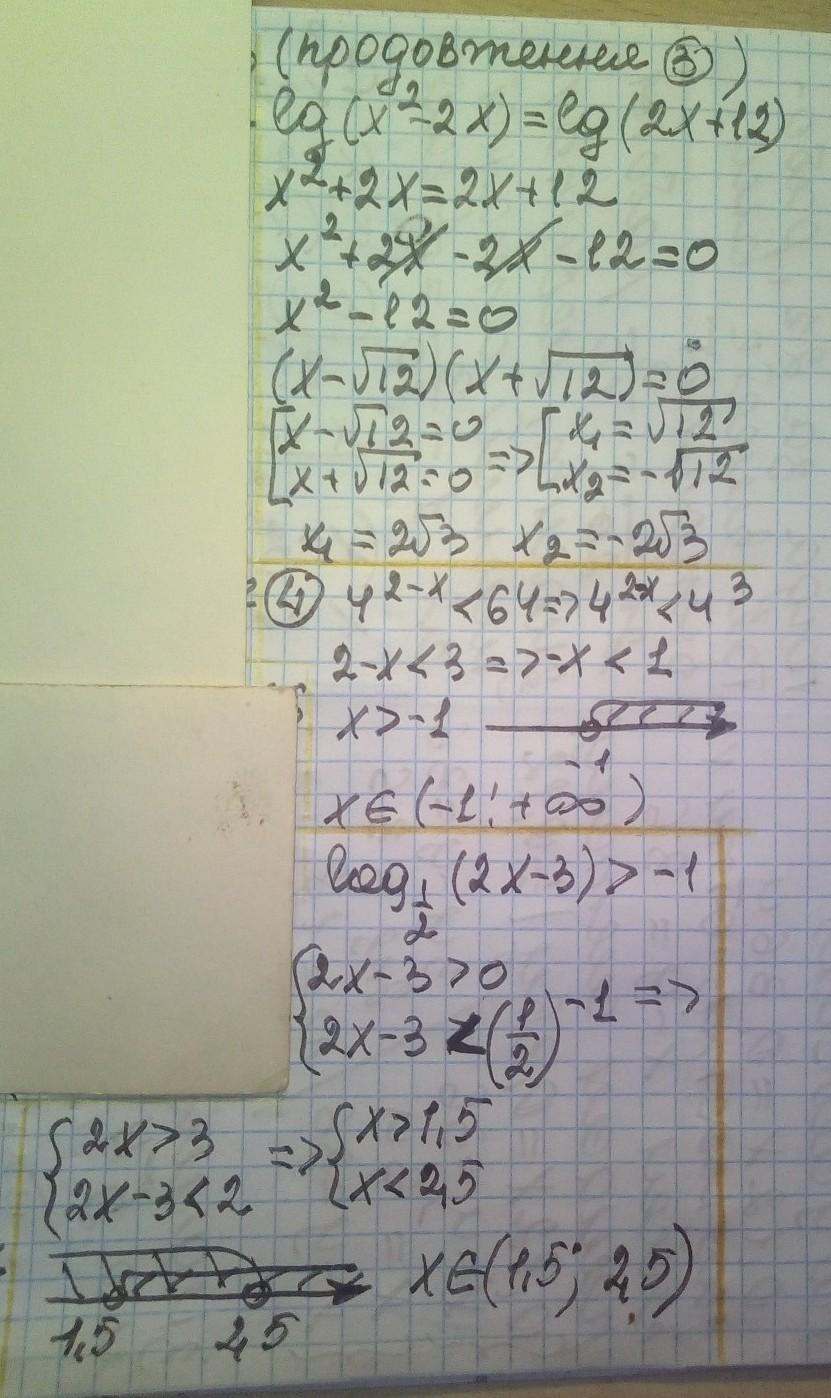 (продовження ③)
lg(x²-2x)=lg(2x+12)
x²+2x=2x+12
x²+2x-2x-12=0
x²-12=0
(x-√12)(x+√12)=0
[x-√12=0 => [x₁=√12
[x+√12=0 [x₂=-√12
x₁=2√3 x₂=-2√3
④ 4^(2-x)<64=>4^(2-x)<4³
2-x<3 => -x<1
x>-1
-1
x∈(-1;+∞)
log_(1/2)(2x-3)>-1
{2x-3>0
{2x-3<(1/2)^(-1) =>
{2x>3 => {x>1,5
{2x-3<2 {x<2,5
x∈(1,5; 2,5)
1,5 2,5